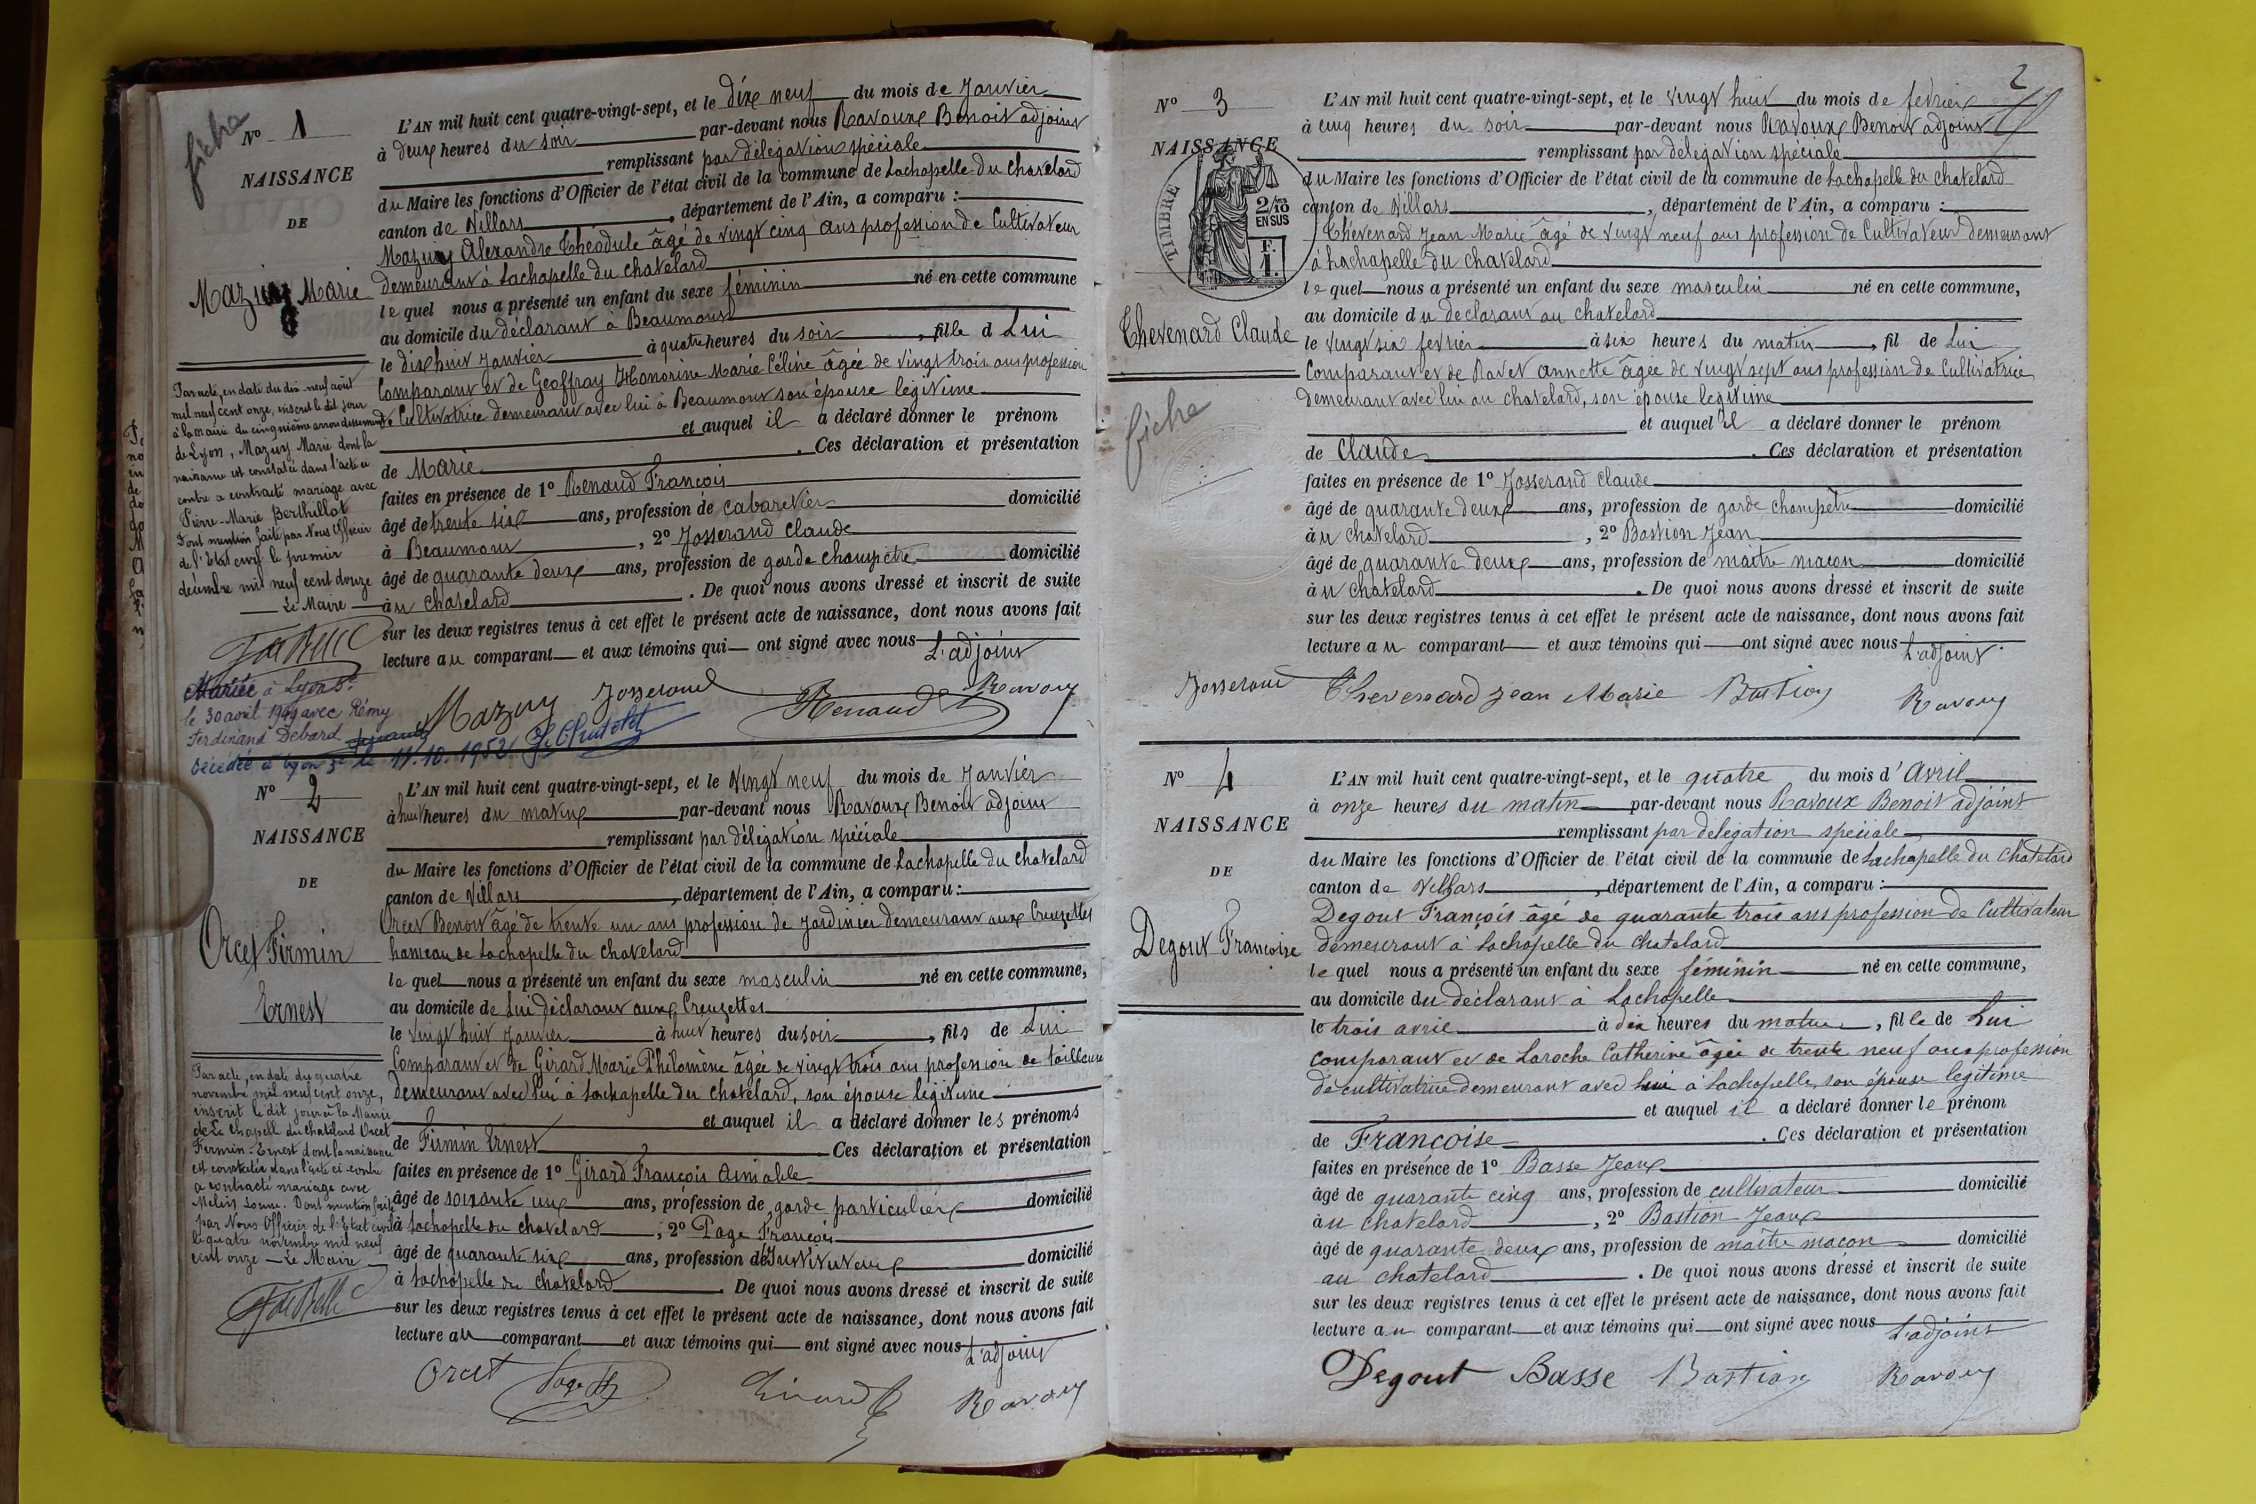 fiche
Nº 1
NAISSANCE
DE
Mazuy Marie
L'AN mil huit cent quatre-vingt-sept, et le dix neuf du mois de Janvier
à deux heures du soir par-devant nous Ravoux Benoit adjoint
remplissant par délégation spéciale
du Maire les fonctions d'Officier de l'état civil de la commune de Lachapelle du Chatelard
canton de Villars, département de l'Ain, a comparu :
Mazuy Alexandre Théodule âgé de vingt cinq ans profession de Cultivateur
demeurant à Lachapelle du Chatelard
lequel nous a présenté un enfant du sexe féminin né en cette commune
au domicile du déclarant à Beaumont
le dix huit Janvier à quatre heures du soir, fille d Lui
Comparant et de Geoffray Honorine Marie Céline âgée de vingt trois ans profession
de Cultivatrice demeurant avec lui à Beaumont son épouse légitime
et auquel il a déclaré donner le prénom
de Marie. Ces déclaration et présentation
faites en présence de 1º Renaud François
âgé de trente six ans, profession de cabaretier domicilié
à Beaumont, 2º Josserand Claude
âgé de quarante deux ans, profession de garde champêtre domicilié
au chatelard. De quoi nous avons dressé et inscrit de suite
sur les deux registres tenus à cet effet le présent acte de naissance, dont nous avons fait
lecture au comparant et aux témoins qui ont signé avec nous
L'adjoint
Mazuy Josserand Renaud Ravoux
Par acte, en date du dix-neuf août
mil neuf cent onze, inscrit le dit jour
à la mairie du cinquième arrondissement
de Lyon, Mazuy Marie dont la
naissance est constatée dans l'acte ci
contre a contracté mariage avec
Pierre-Marie Berthillot
Dont mention faite par Nous Officier
de l'Etat civil le premier
décembre mil neuf cent douze
Le Maire
Mariée à Lyon 3e
le 30 avril 1949 avec Rémy
Ferdinand Debard
Décédée à Lyon 3e le 11.10.1952
Nº 2
NAISSANCE
DE
Orcet Firmin
Ernest
L'AN mil huit cent quatre-vingt-sept, et le vingt neuf du mois de Janvier
à huit heures du matin par-devant nous Ravoux Benoit adjoint
remplissant par délégation spéciale
du Maire les fonctions d'Officier de l'état civil de la commune de Lachapelle du Chatelard
canton de Villars, département de l'Ain, a comparu :
Orcet Benoit âgé de trente un ans profession de Jardinier demeurant aux Creuzettes
hameau de Lachapelle du chatelard
lequel nous a présenté un enfant du sexe masculin né en cette commune,
au domicile de Lui déclarant aux Creuzettes
le vingt huit Janvier à huit heures du soir, fils de Lui
Comparant et de Girard Marie Philomène âgée de vingt trois ans profession de tailleuse
demeurant avec lui à Lachapelle du chatelard, son épouse légitime
et auquel il a déclaré donner les prénoms
de Firmin Ernest Ces déclaration et présentation
faites en présence de 1º Girard François Amiable
âgé de soixante un ans, profession de garde particulier domicilié
à Lachapelle du chatelard, 2º Page François
âgé de quarante six ans, profession d'Instituteur domicilié
à Lachapelle du chatelard. De quoi nous avons dressé et inscrit de suite
sur les deux registres tenus à cet effet le présent acte de naissance, dont nous avons fait
lecture au comparant et aux témoins qui ont signé avec nous
L'adjoint
Orcet Page Girard Ravoux
Par acte, en date du quatre
novembre mil neuf cent onze,
inscrit le dit jour à la Mairie
de La Chapelle du Chatelard Orcet
Firmin-Ernest dont la naissance
est constatée dans l'acte ci-contre
a contracté mariage avec
Dont mention faite
par Nous Officier de l'Etat civil
le quatre novembre mil neuf
cent onze - Le Maire
2
Nº 3
NAISSANCE
TIMBRE
2/10 EN SUS
F. 1.
Thevenard Claude
fiche
L'AN mil huit cent quatre-vingt-sept, et le vingt huit du mois de fevrier
à cinq heures du soir par-devant nous Ravoux Benoit adjoint
remplissant par délégation spéciale
du Maire les fonctions d'Officier de l'état civil de la commune de Lachapelle du chatelard
canton de Villars, département de l'Ain, a comparu :
Thevenard Jean Marie âgé de vingt neuf ans profession de Cultivateur demeurant
à Lachapelle du chatelard
lequel nous a présenté un enfant du sexe masculin né en cette commune,
au domicile du déclarant au chatelard
le vingt six fevrier à six heures du matin, fil de Lui
Comparant et de Ravet Annette âgée de vingt sept ans profession de Cultivatrice
demeurant avec lui au chatelard, son épouse légitime
et auquel il a déclaré donner le prénom
de Claude. Ces déclaration et présentation
faites en présence de 1º Josserand Claude
âgé de quarante deux ans, profession de garde champêtre domicilié
au chatelard, 2º Bastion Jean
âgé de quarante deux ans, profession de maitre macon domicilié
au chatelard. De quoi nous avons dressé et inscrit de suite
sur les deux registres tenus à cet effet le présent acte de naissance, dont nous avons fait
lecture au comparant et aux témoins qui ont signé avec nous
L'adjoint
Josserand Thevenard Jean Marie Bastion Ravoux
Nº 4
NAISSANCE
DE
Degout Francoise
L'AN mil huit cent quatre-vingt-sept, et le quatre du mois d'Avril
à onze heures du matin par-devant nous Ravoux Benoit adjoint
remplissant par délégation spéciale
du Maire les fonctions d'Officier de l'état civil de la commune de Lachapelle du Chatelard
canton de Villars, département de l'Ain, a comparu :
Degout François âgé de quarante trois ans profession de Cultivateur
demeurant à Lachapelle du Chatelard
lequel nous a présenté un enfant du sexe féminin né en cette commune,
au domicile du déclarant à Lachapelle
le trois avril à dix heures du matin, fille de Lui
comparant et de Laroche Catherine âgée de trente neuf ans profession
de cultivatrice demeurant avec lui à Lachapelle, son épouse légitime
et auquel il a déclaré donner le prénom
de Françoise. Ces déclaration et présentation
faites en présence de 1º Basse Jean
âgé de quarante cinq ans, profession de cultivateur domicilié
au chatelard, 2º Bastion Jean
âgé de quarante deux ans, profession de maitre macon domicilié
au chatelard. De quoi nous avons dressé et inscrit de suite
sur les deux registres tenus à cet effet le présent acte de naissance, dont nous avons fait
lecture au comparant et aux témoins qui ont signé avec nous
L'adjoint
Degout Basse Bastion Ravoux